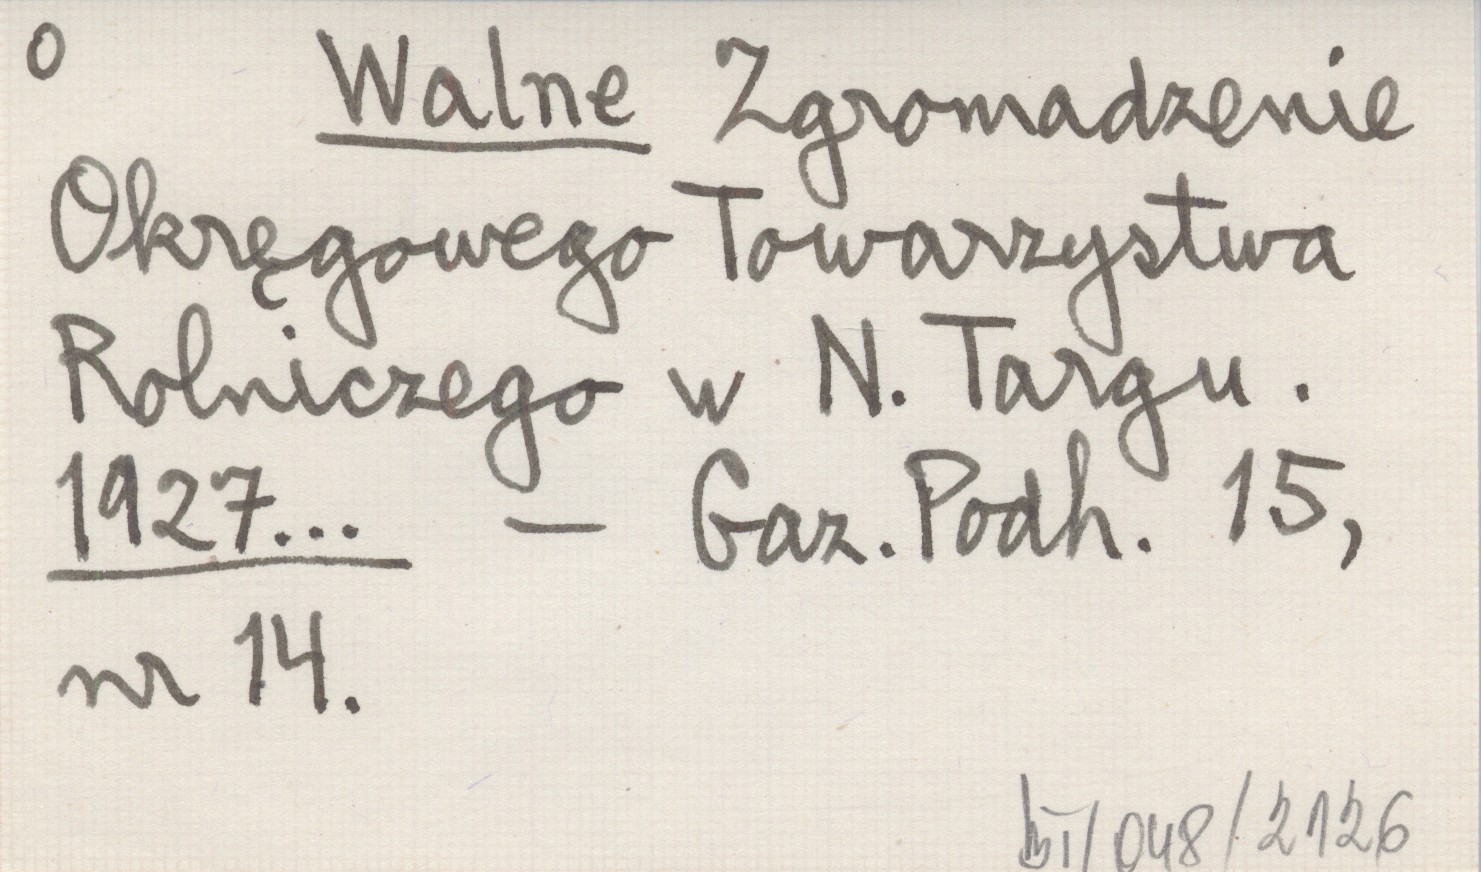 o Walne Zgromadzenie
Okręgowego Towarzystwa
Rolniczego w N. Targu.
1927... — Gaz. Podh. 15,
nr 14.
/048/2126